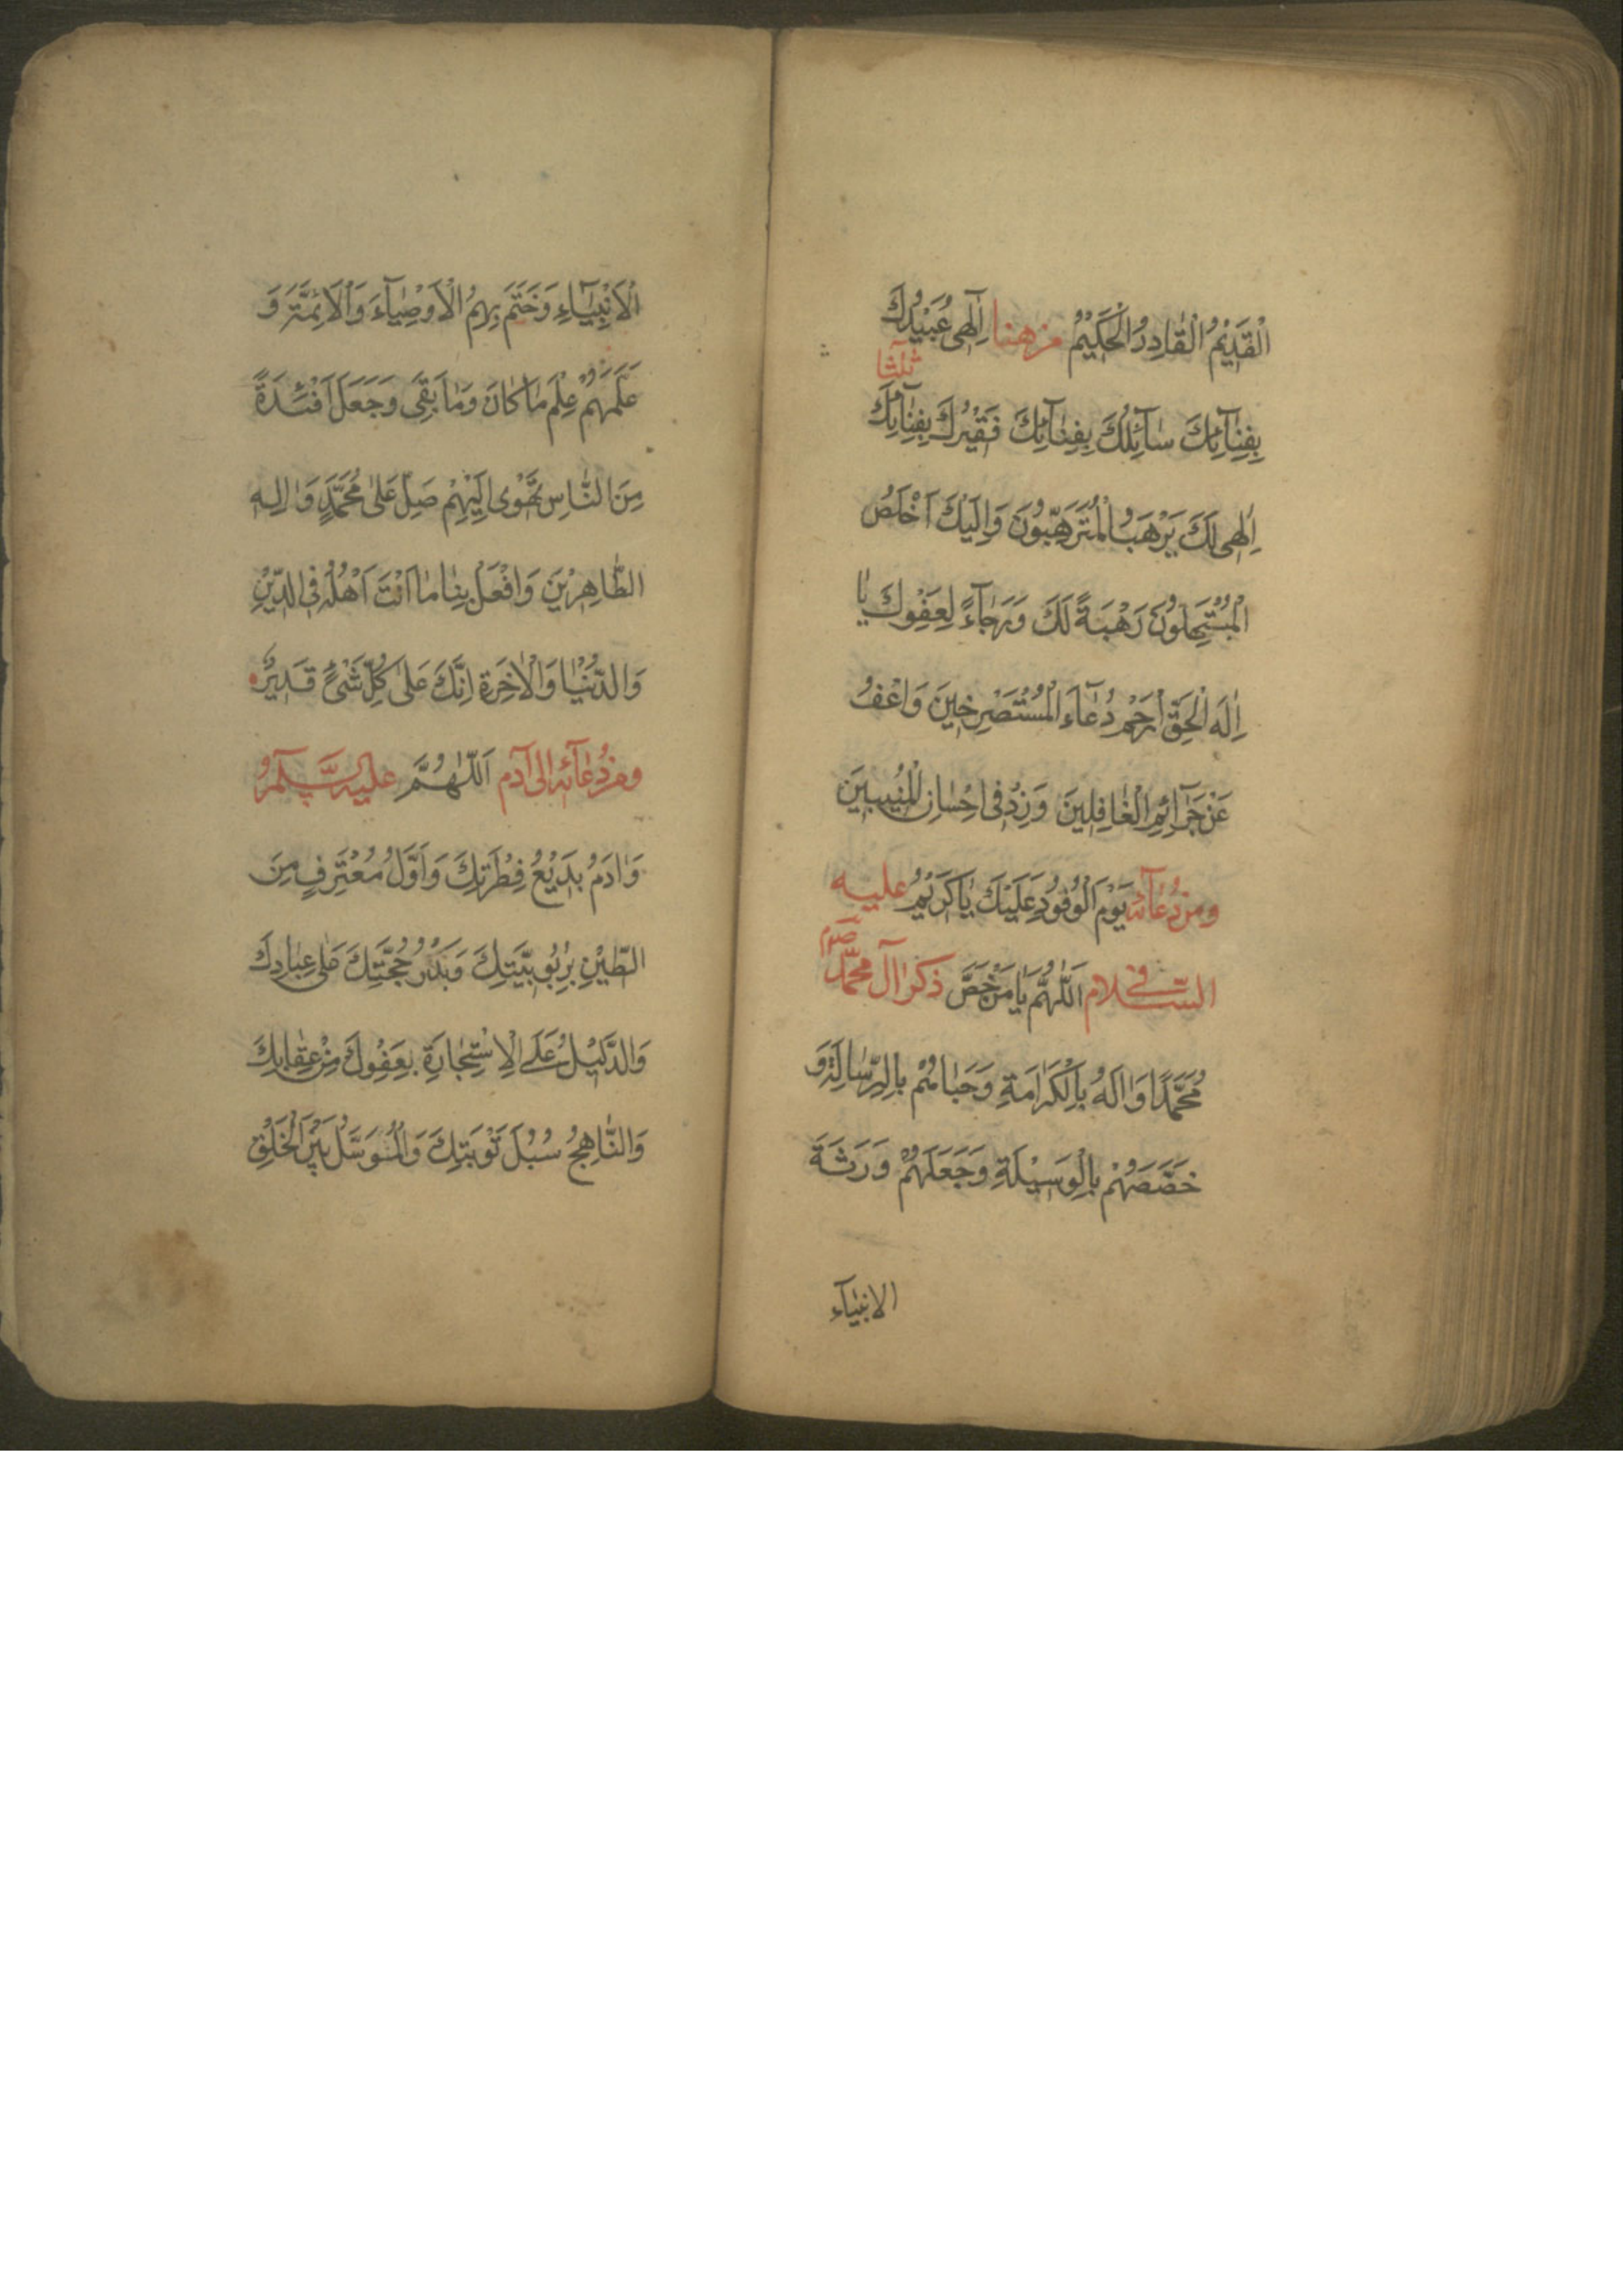 الْقَدِيْمُ الْقَادِرُ الْحَكِيْمُ من هنا اِلٰهِى عُبَيْدُكَ
ثلثا
بِفِنَآئِكَ سَآئِلُكَ بِفِنَآئِكَ فَقِيْرُكَ بِفِنَآئِكَ
اِلٰهِى لَكَ يَرْهَبُ الْمُتَرَهِّبُونَ وَاِلَيْكَ اَخْلَصُ
الْمُبْتَهِلُونَ رَهْبَةً لَكَ وَرَجَآءً لِعَفْوِكَ يَا
اِلٰهَ الْحَقِّ ارْحَمْ دُعَآءَ الْمُسْتَصْرِخِينَ وَاعْفُ
عَنْ جَرَآئِمِ الْغَافِلِينَ وَزِدْ فِى اِحْسَانِ الْمُنِيبِينَ
ومن دُعَآئه يَوْمَ الْوُفُودِ عَلَيْكَ يَا كَرِيْمُ عليه
السّلام فى اَللّٰهُمَّ يَا مَنْ خَصَّ ذكر آل محمّد
مُحَمَّدًا وَاٰلَهُ بِالْكَرَامَةِ وَحَبَاهُمْ بِالرِّسَالَةِ وَ
خَصَّصَهُمْ بِالْوَسِيْلَةِ وَجَعَلَهُمْ وَرَثَةَ
الانبيآء
الْاَنْبِيَآءِ وَخَتَمَ بِهِمُ الْاَوْصِيَآءَ وَالْاَئِمَّةَ وَ
عَلَّمَهُمْ عِلْمَ مَا كَانَ وَمَا بَقِىَ وَجَعَلَ اَفْئِدَةً
مِنَ النَّاسِ تَهْوِى اِلَيْهِمْ صَلِّ عَلٰى مُحَمَّدٍ وَاٰلِهِ
الطَّاهِرِيْنَ وَافْعَلْ بِنَا مَا اَنْتَ اَهْلُهُ فِى الدِّيْنِ
وَالدُّنْيَا وَالْاٰخِرَةِ اِنَّكَ عَلٰى كُلِّ شَىْءٍ قَدِيْرٌ
ومن دُعَآئه الى آدم اَللّٰهُمَّ عليه السَّلام
وَاٰدَمُ بَدِيْعُ فِطْرَتِكَ وَاَوَّلُ مُعْتَرِفٍ مِنَ
الطِّيْنِ بِرُبُوبِيَّتِكَ وَبَدْرُ حُجَّتِكَ عَلٰى عِبَادِكَ
وَالدَّلِيْلُ عَلَى الْاِسْتِجَارَةِ بِعَفْوِكَ مِنْ عِقَابِكَ
وَالنَّاهِجُ سُبُلَ تَوْبَتِكَ وَالْمُتَوَسَّلُ بَيْنَ الْخَلْقِ